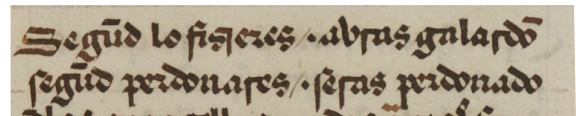 Segũd lo fisieres /· abras galardõ
segũd perdonares /· seras perdonado